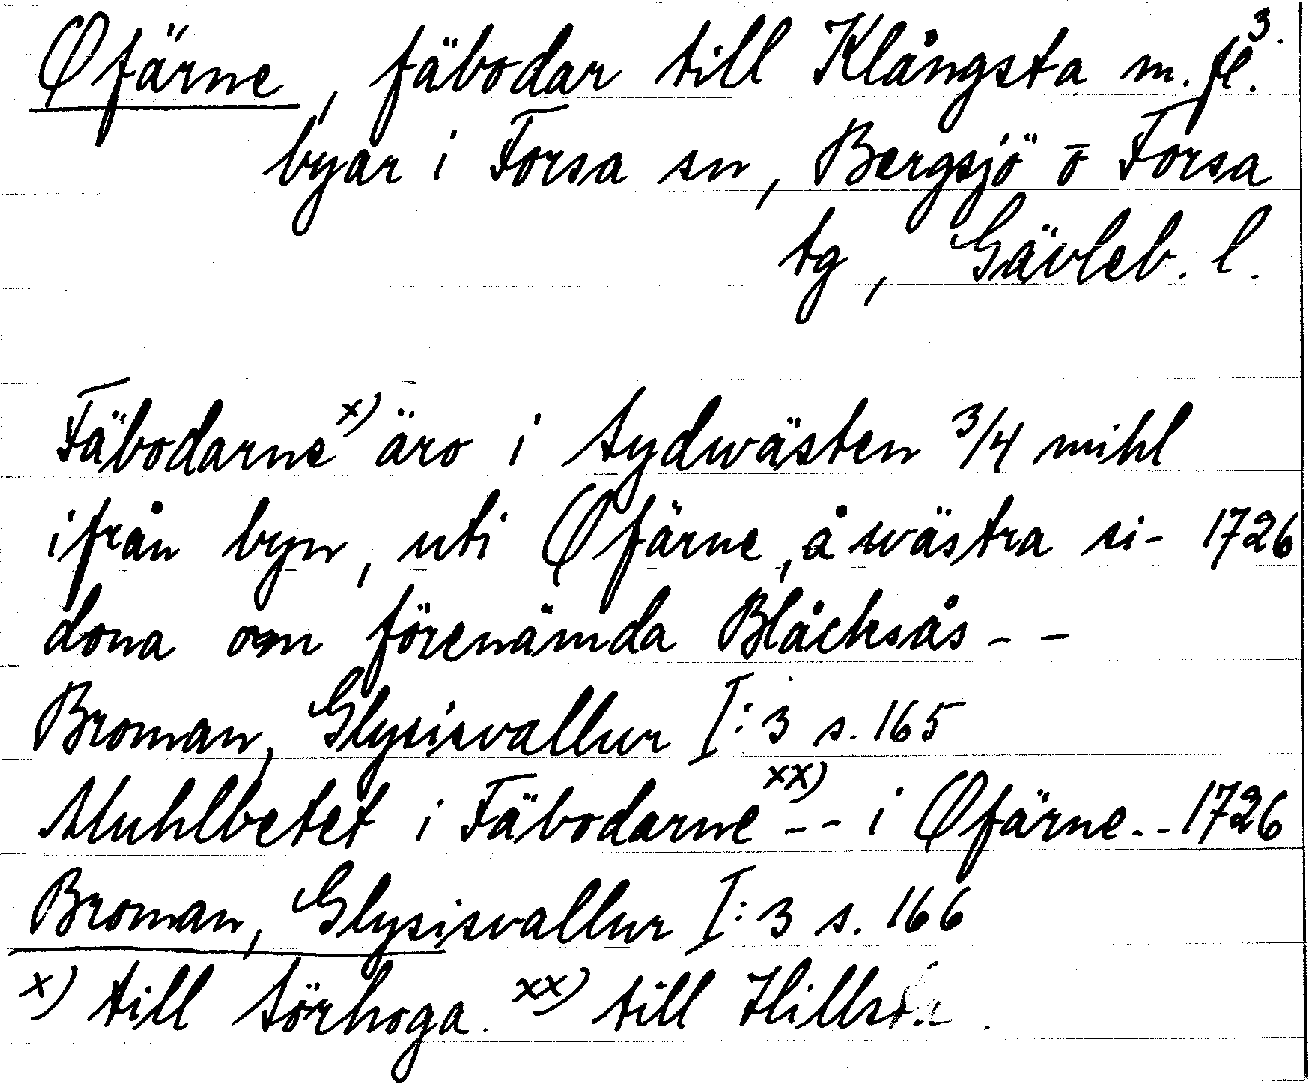 Øfärne, fäbodar till Klångsta m. fl. 3.
byar i Forsa sn, Bergsjö o Forsa
tg, Gävleb. l.
Fäbodarne x) äro i sydwästen 3/4 mihl
ifrån byn, uti Øfärne, å wästra si- 1726
dona om förenämda Blåcksås - -
Broman, Glysisvallur I:3 s. 165
Muhlbetet i Fäbodarne xx) - - i Øfärne - - 1726
Broman, Glysisvallur I:3 s. 166
x) till Sörhoga. xx) till